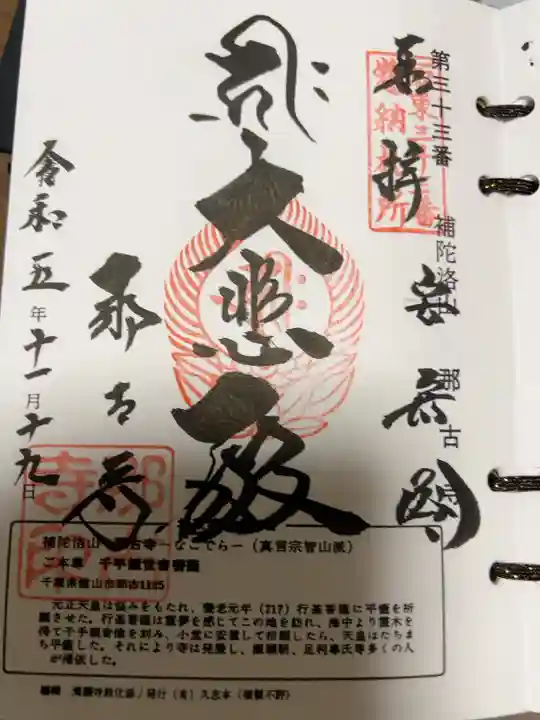 第三十三番 補陀洛山 那古寺
奉拝
坂東三十三番
納札所
大悲殿
那古寺
令和五年十一月十九日
那古寺
補陀洛山 那古寺ーなごでらー（真言宗智山派）
ご本尊 千手観世音菩薩
千葉県館山市那古1125
元正天皇は悩みをもたれ、養老元年（717）行基菩薩に平癒を祈
願させた。行基菩薩は霊夢を感じてこの地を訪れ、海中より霊木を
得て千手観音像を刻み、小堂に安置して祈願したら、天皇はたちま
ち平癒した。それにより寺は発展し、源頼朝、足利尊氏等多くの人
が帰依した。